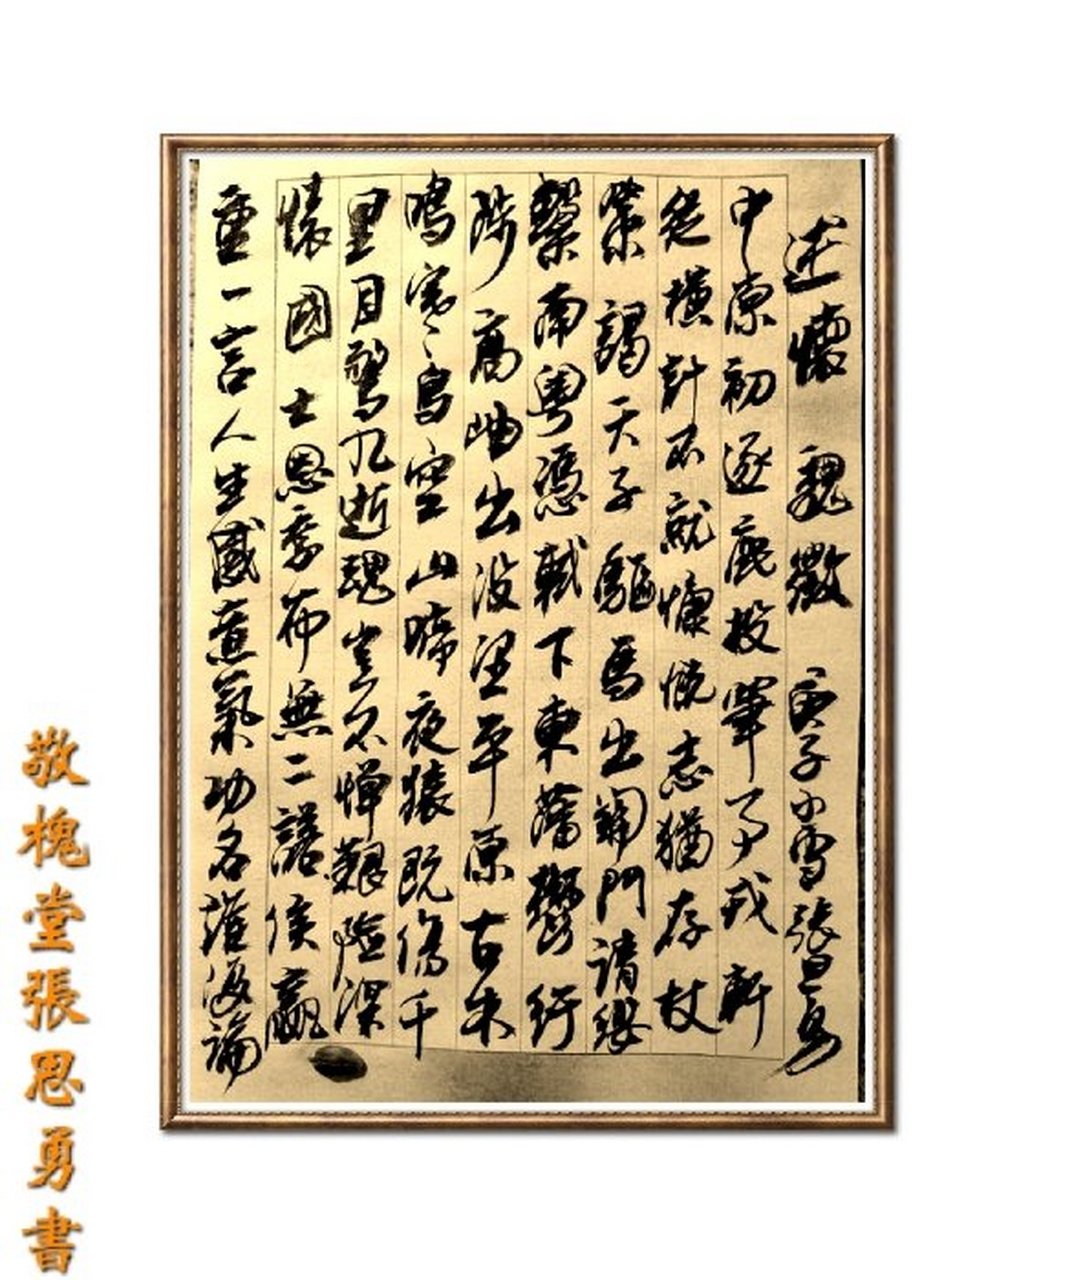 述懷 魏徵 庚子小雪張思勇
中原初逐鹿投筆事戎軒
從橫計不就慷慨志猶存杖
策謁天子驅馬出關門請纓
繫南粵憑軾下東藩鬱紆
陟高岫出沒望平原古木
鳴寒鳥空山啼夜猿既傷千
里目驚九逝魂豈不憚艱險深
懷國士恩季布無二諾侯嬴
重一言人生感意氣功名誰復論
敬槐堂張思勇書